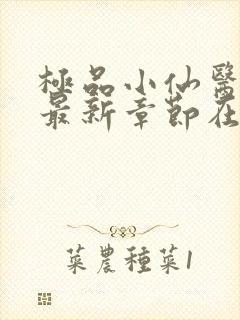 極品小仙醫
最新章節在
菜農種菜1